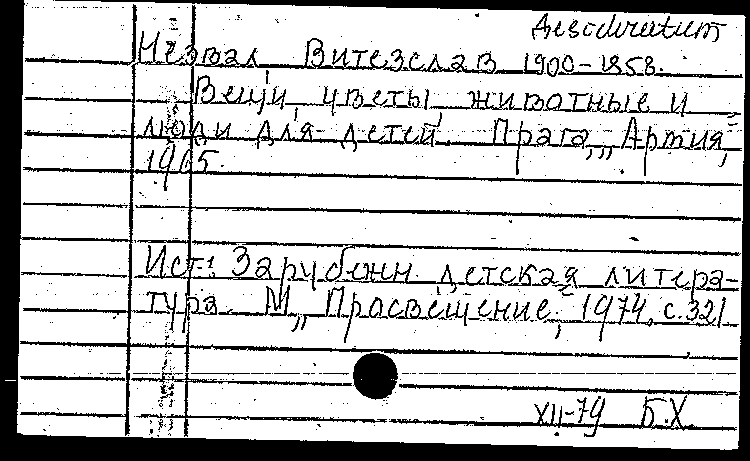 Desideratum
Незвал, Витезслав 1900-1958.
Вещи, цветы, животные и
люди для детей. Прага, „Артия",
1965.
Ист.: Зарубежн. детская литера-
тура. М., „Просвещение", 1974, с.321
XII-79 Б.Х.